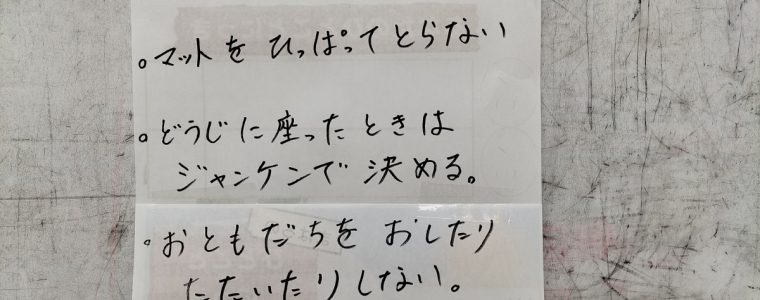 。マットを ひっぱって とらない
。どうじに座ったときは
ジャンケンで 決める。
・おともだちを おしたり
たたいたりしない。